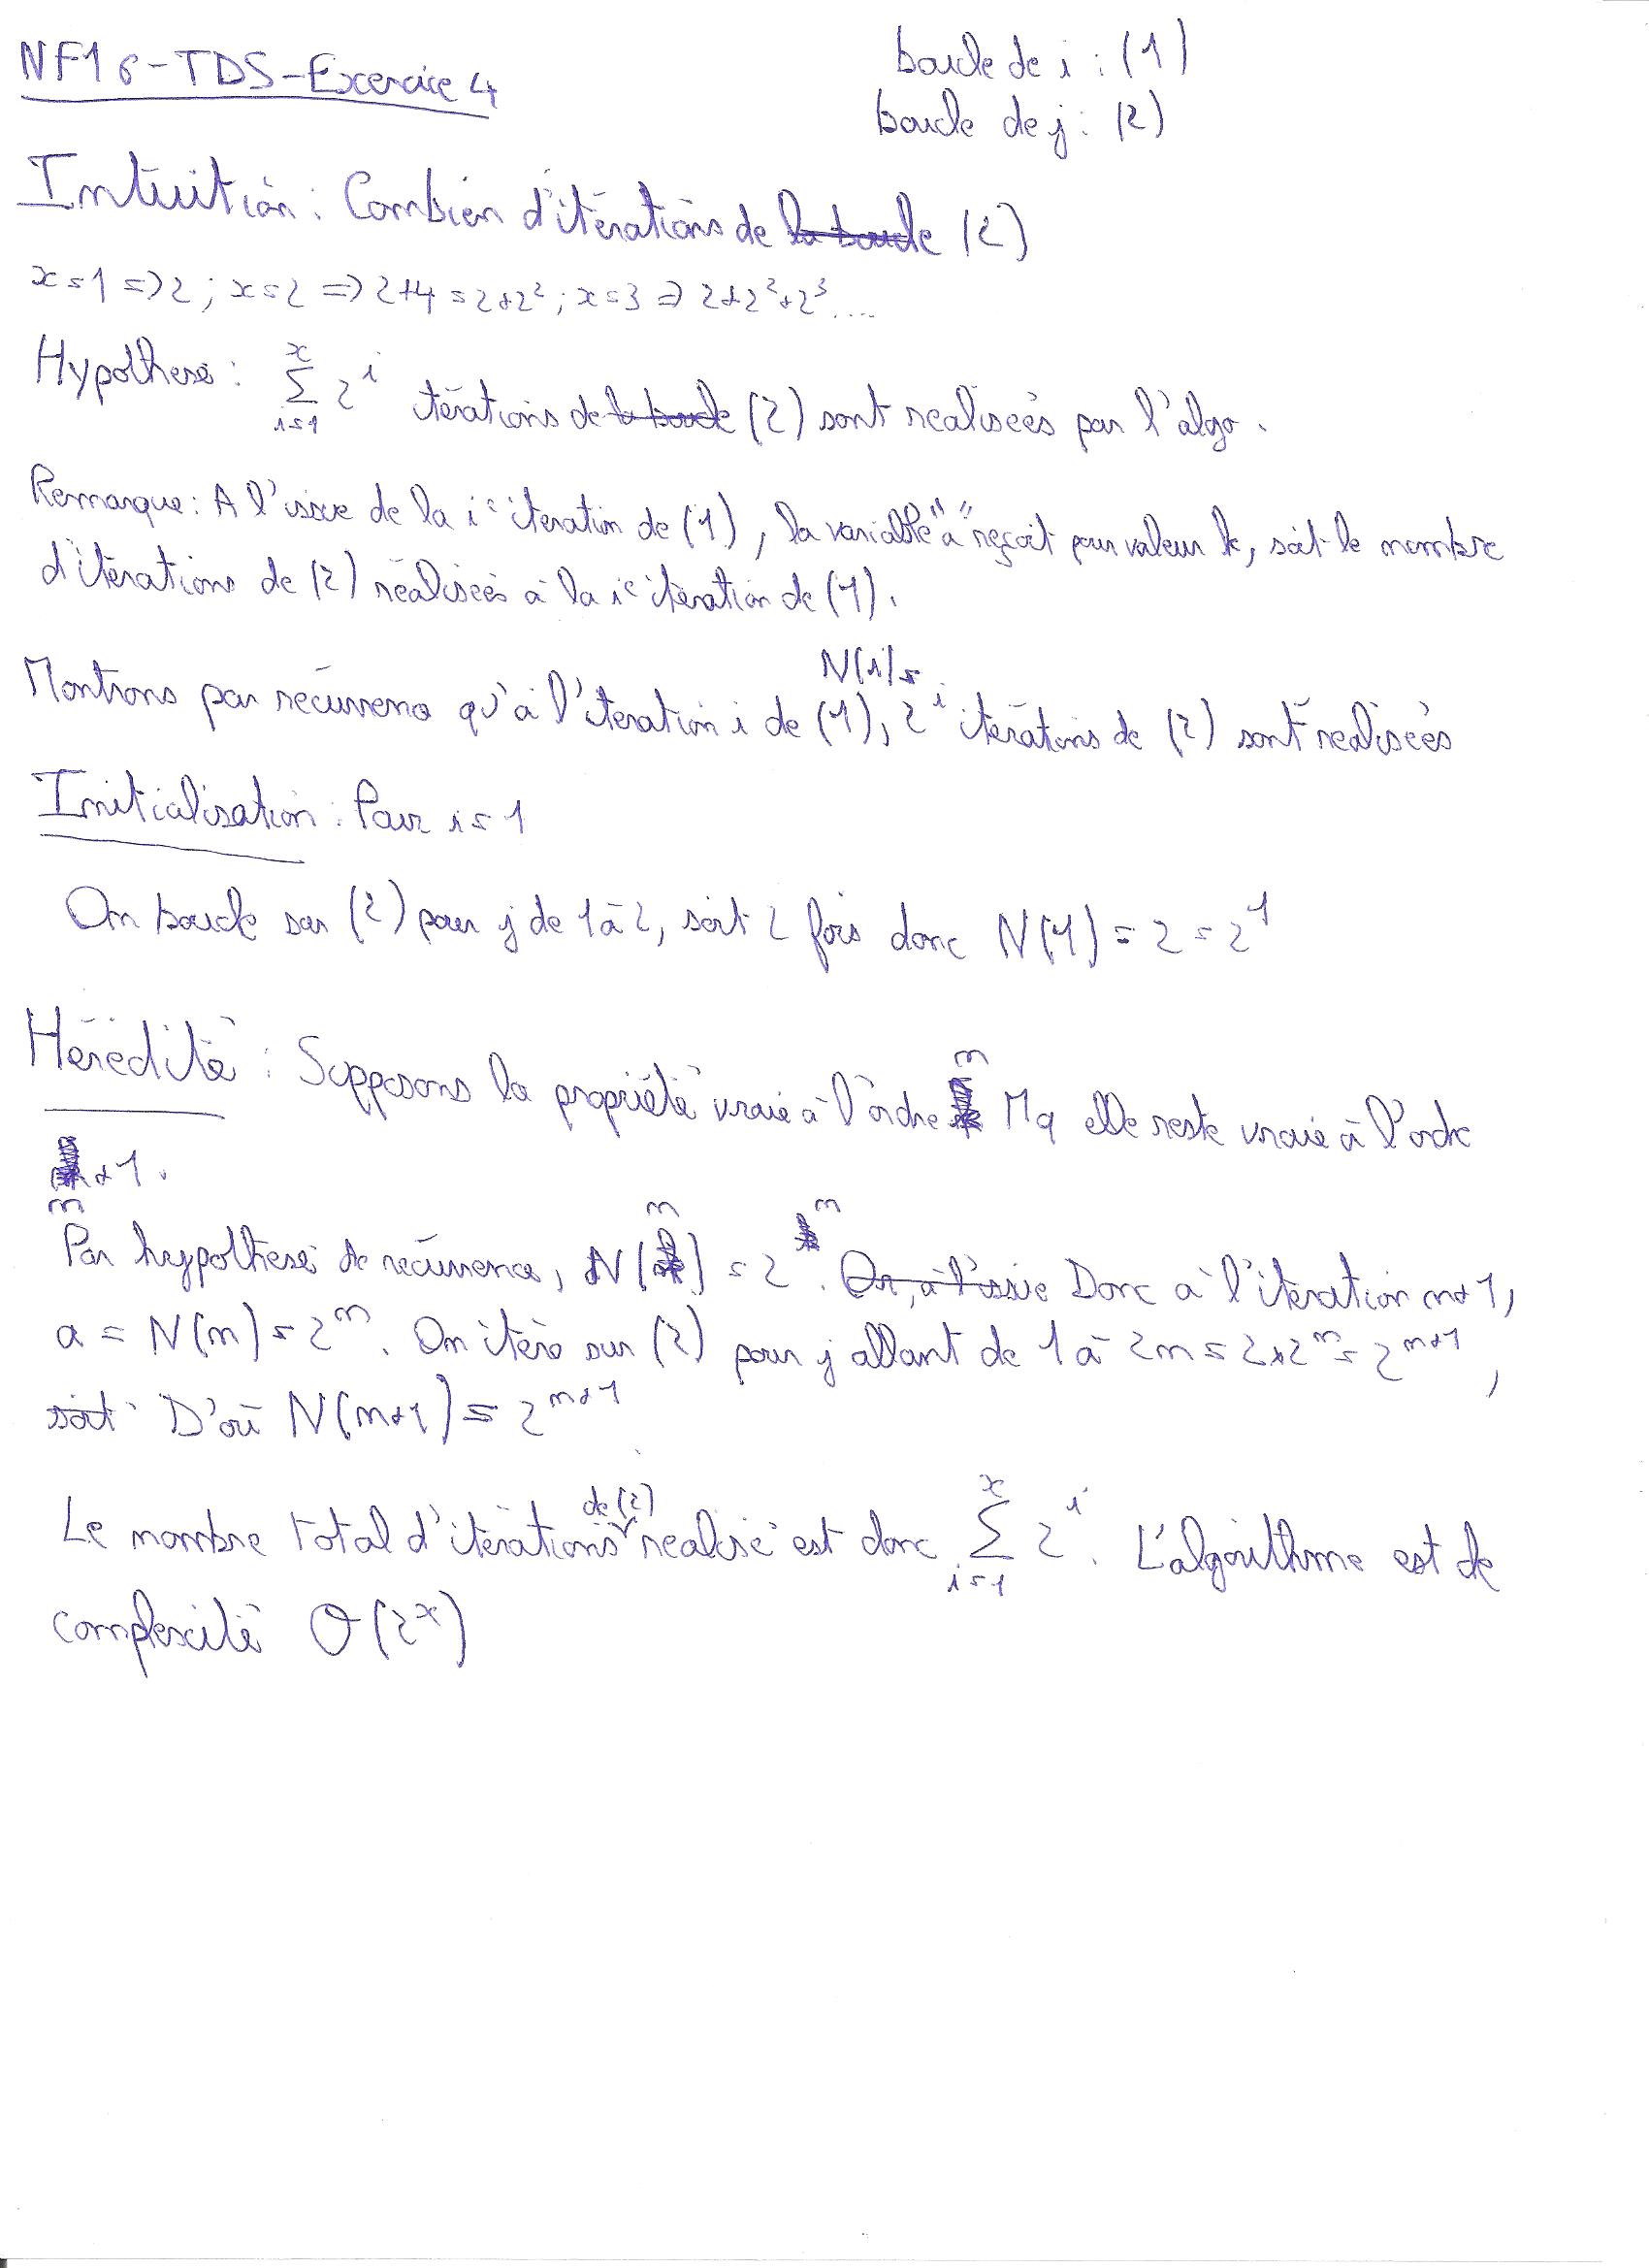 NF16-TDS-Excercice 4
boucle de i : (1)
boucle de j : (2)
Intuition : Combien d'itérations de la boucle (2)
x=1 => 2 ; x=2 => 2+4 = 2+2² ; x=3 => 2+2²+2³ ....
Hypothèse : ∑_{i=1}^{x} 2^i itérations de la boucle (2) sont réalisées par l'algo.
Remarque : A l'issue de la i^e itération de (1), la variable "a" reçoit pour valeur k, soit le nombre
d'itérations de (2) réalisées à la i^e itération de (1).
Montrons par récurrence qu'à l'itération i de (1), N(i) = 2^i itérations de (2) sont réalisées
Initialisation : Pour i = 1
On boucle sur (2) pour j de 1 à 2, soit 2 fois donc N(1) = 2 = 2^1
Hérédité : Supposons la propriété vraie à l'ordre n Mq elle reste vraie à l'ordre
n+1.
Par hypothèse de récurrence, N(n) = 2^n. Or, à l'issue Donc à l'itération n+1,
a = N(n) = 2^n. On itère sur (2) pour j allant de 1 à 2n = 2×2^n = 2^{n+1},
soit D'où N(n+1) = 2^{n+1}
Le nombre total d'itérations de (2) réalisé est donc ∑_{i=1}^{x} 2^i. L'algorithme est de
complexité O(2^x)